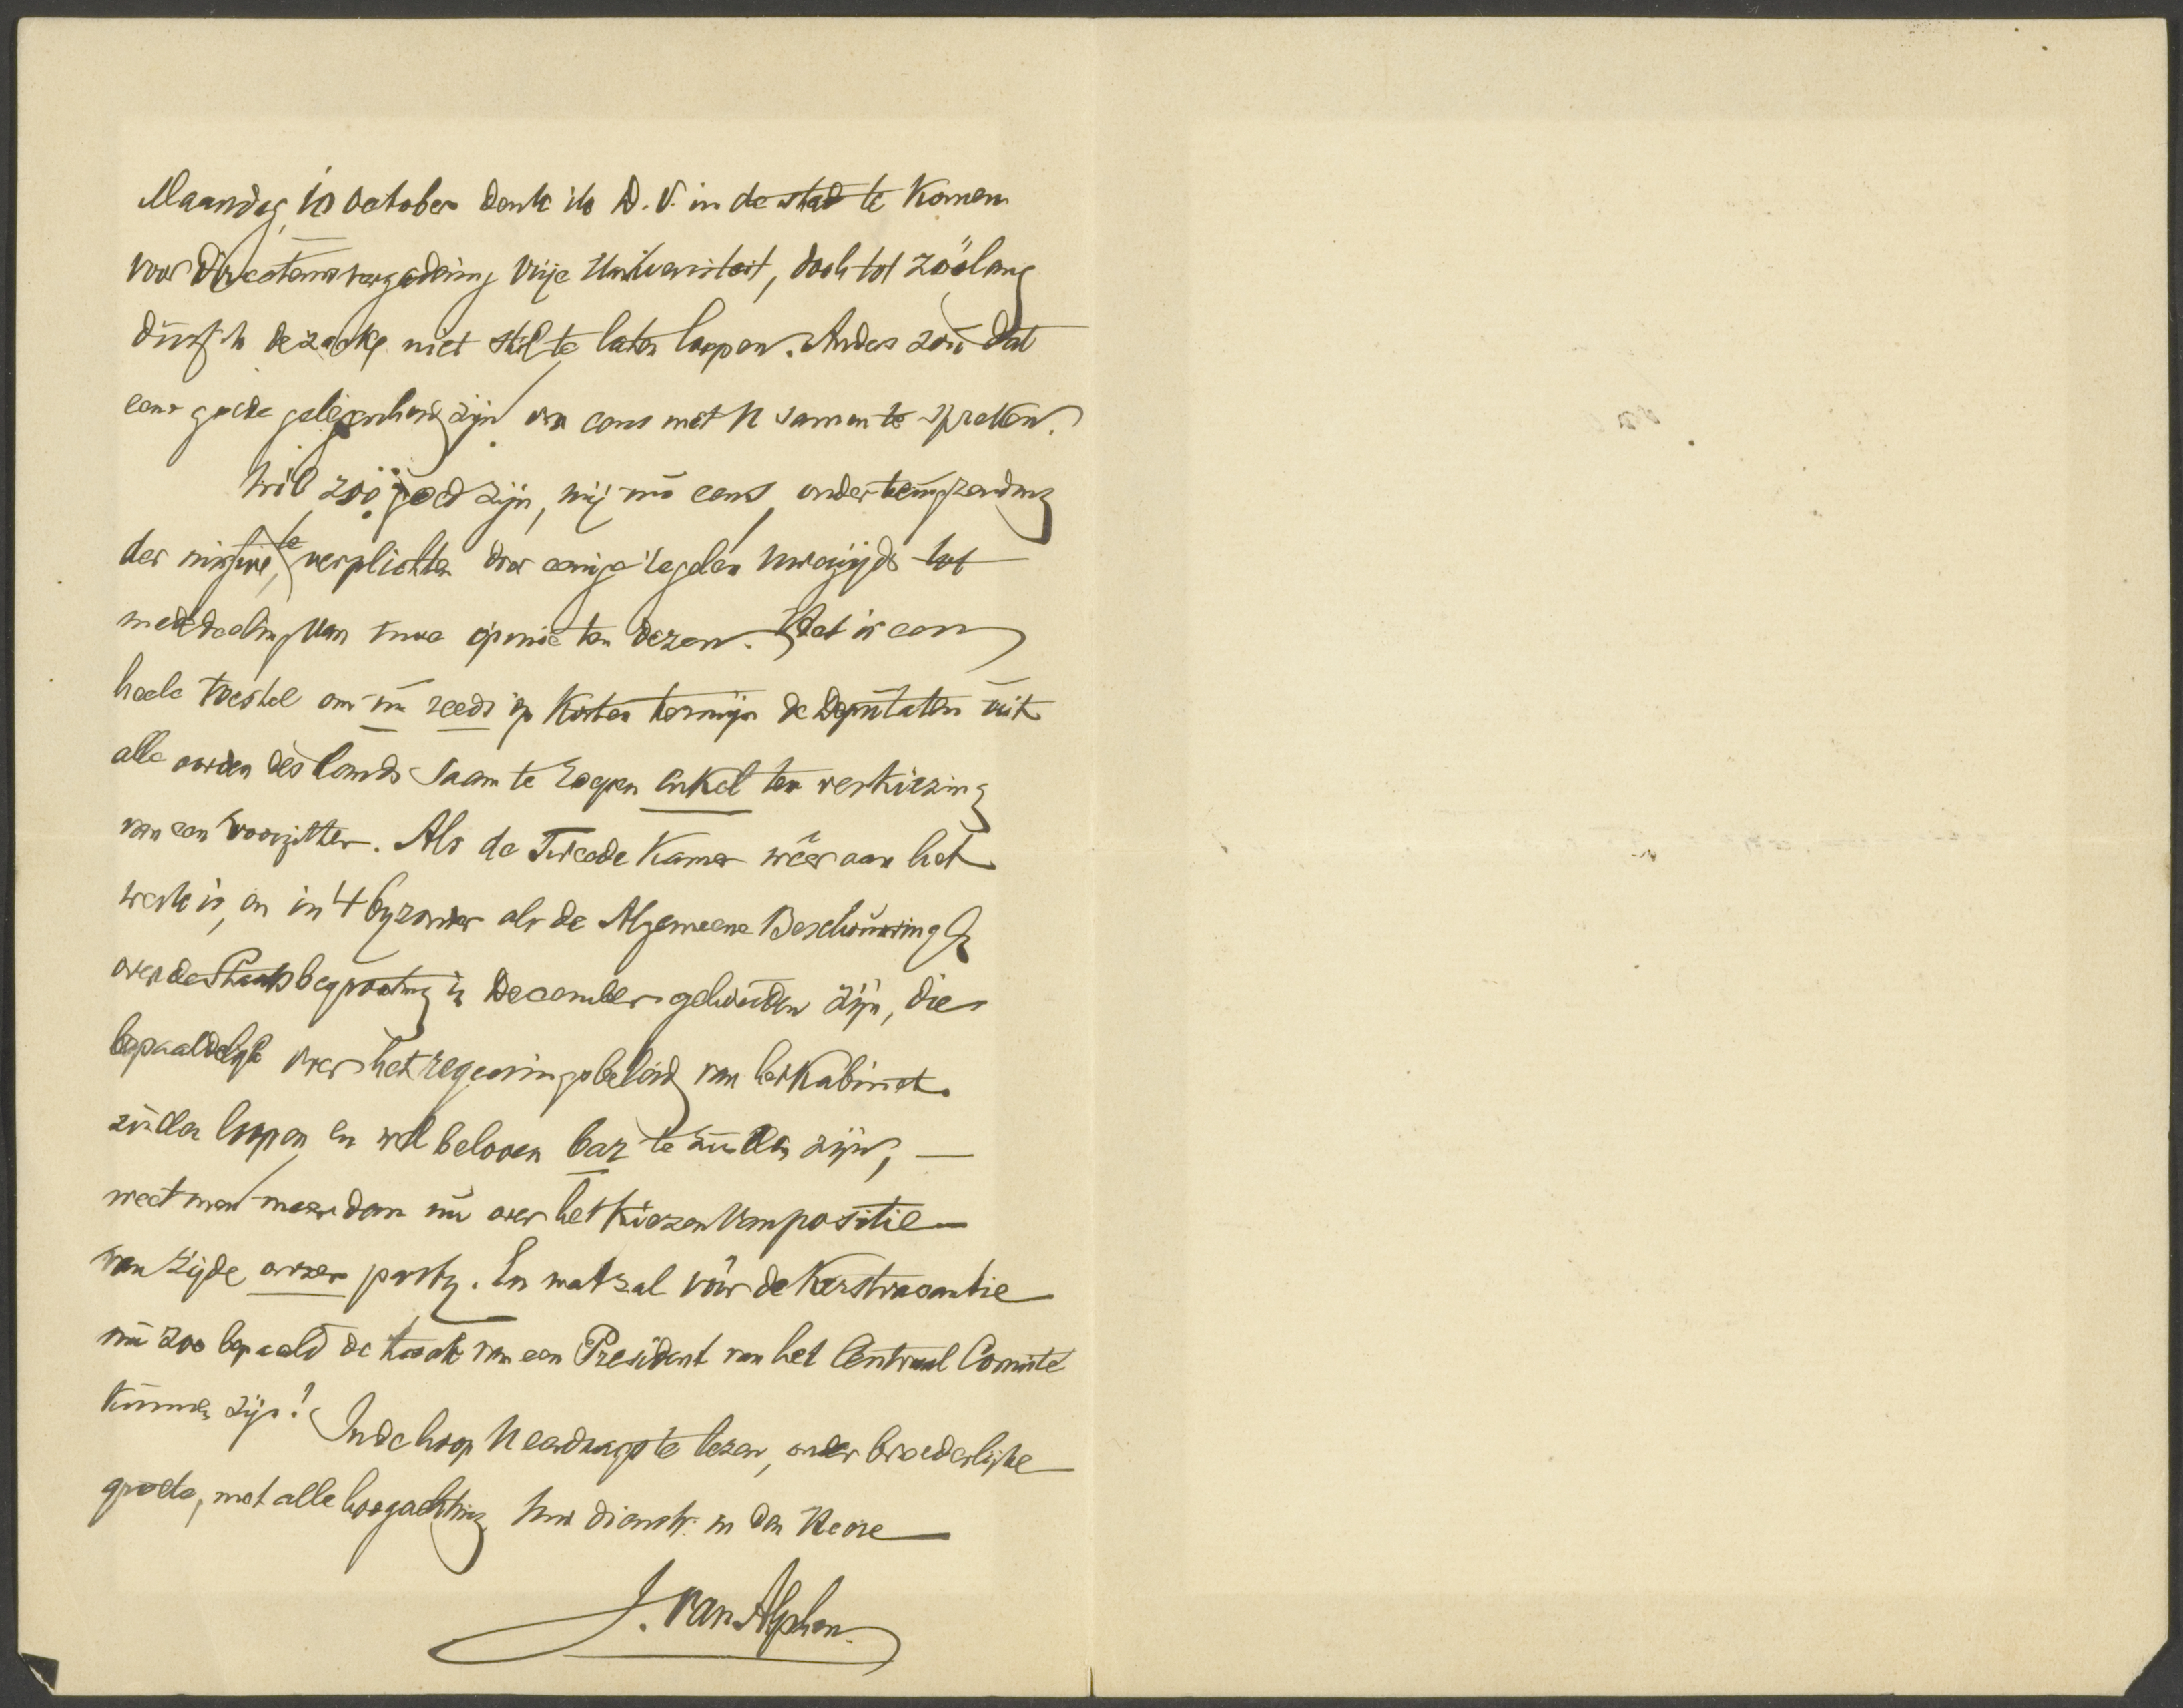 Maandag, 10 October denk ik D.V. in de stad te komen
voor Directeurenvergadering Vrije Universiteit, doch tot zóólang
durf ik de zaak niet stil te laten loopen. Anders zou dat
eene goede gelegenheid zijn om eens met U samen te spreken.
Wil zoo goed zijn, mij nu eens, onder terugzending
der missive, te verplichten door eenige regelen Uwerzijds tot
mededeeling van uwe opinie ten dezen. Het is een
heele toestel om nu reeds op korten termijn de Deputaten uit
alle oorden des lands saam te roepen enkel ter verkiezing
van een voorzitter. Als de Tweede Kamer wéér aan het
werk is, en in 't byzonder als de Algemeene Beschouwing
over de Staatsbegrooting in December gehouden zijn, die
bepaaldelijk over het regeeringsbeleid van het Kabinet
zullen loopen en wel beloven bar te zullen zijn, —
weet men meer dan nu over het kiezen van positie
van zijde onzer party. En wat zal vóór de Kerstvacantie
nu zoo bepaald de taak van een President van het Centraal Comité
kunnen zijn! In de hoop U eerdaags te lezen, onder broederlijke
groete, met alle hoogachting Uw dienstv. in den Heere
J. van Alphen.